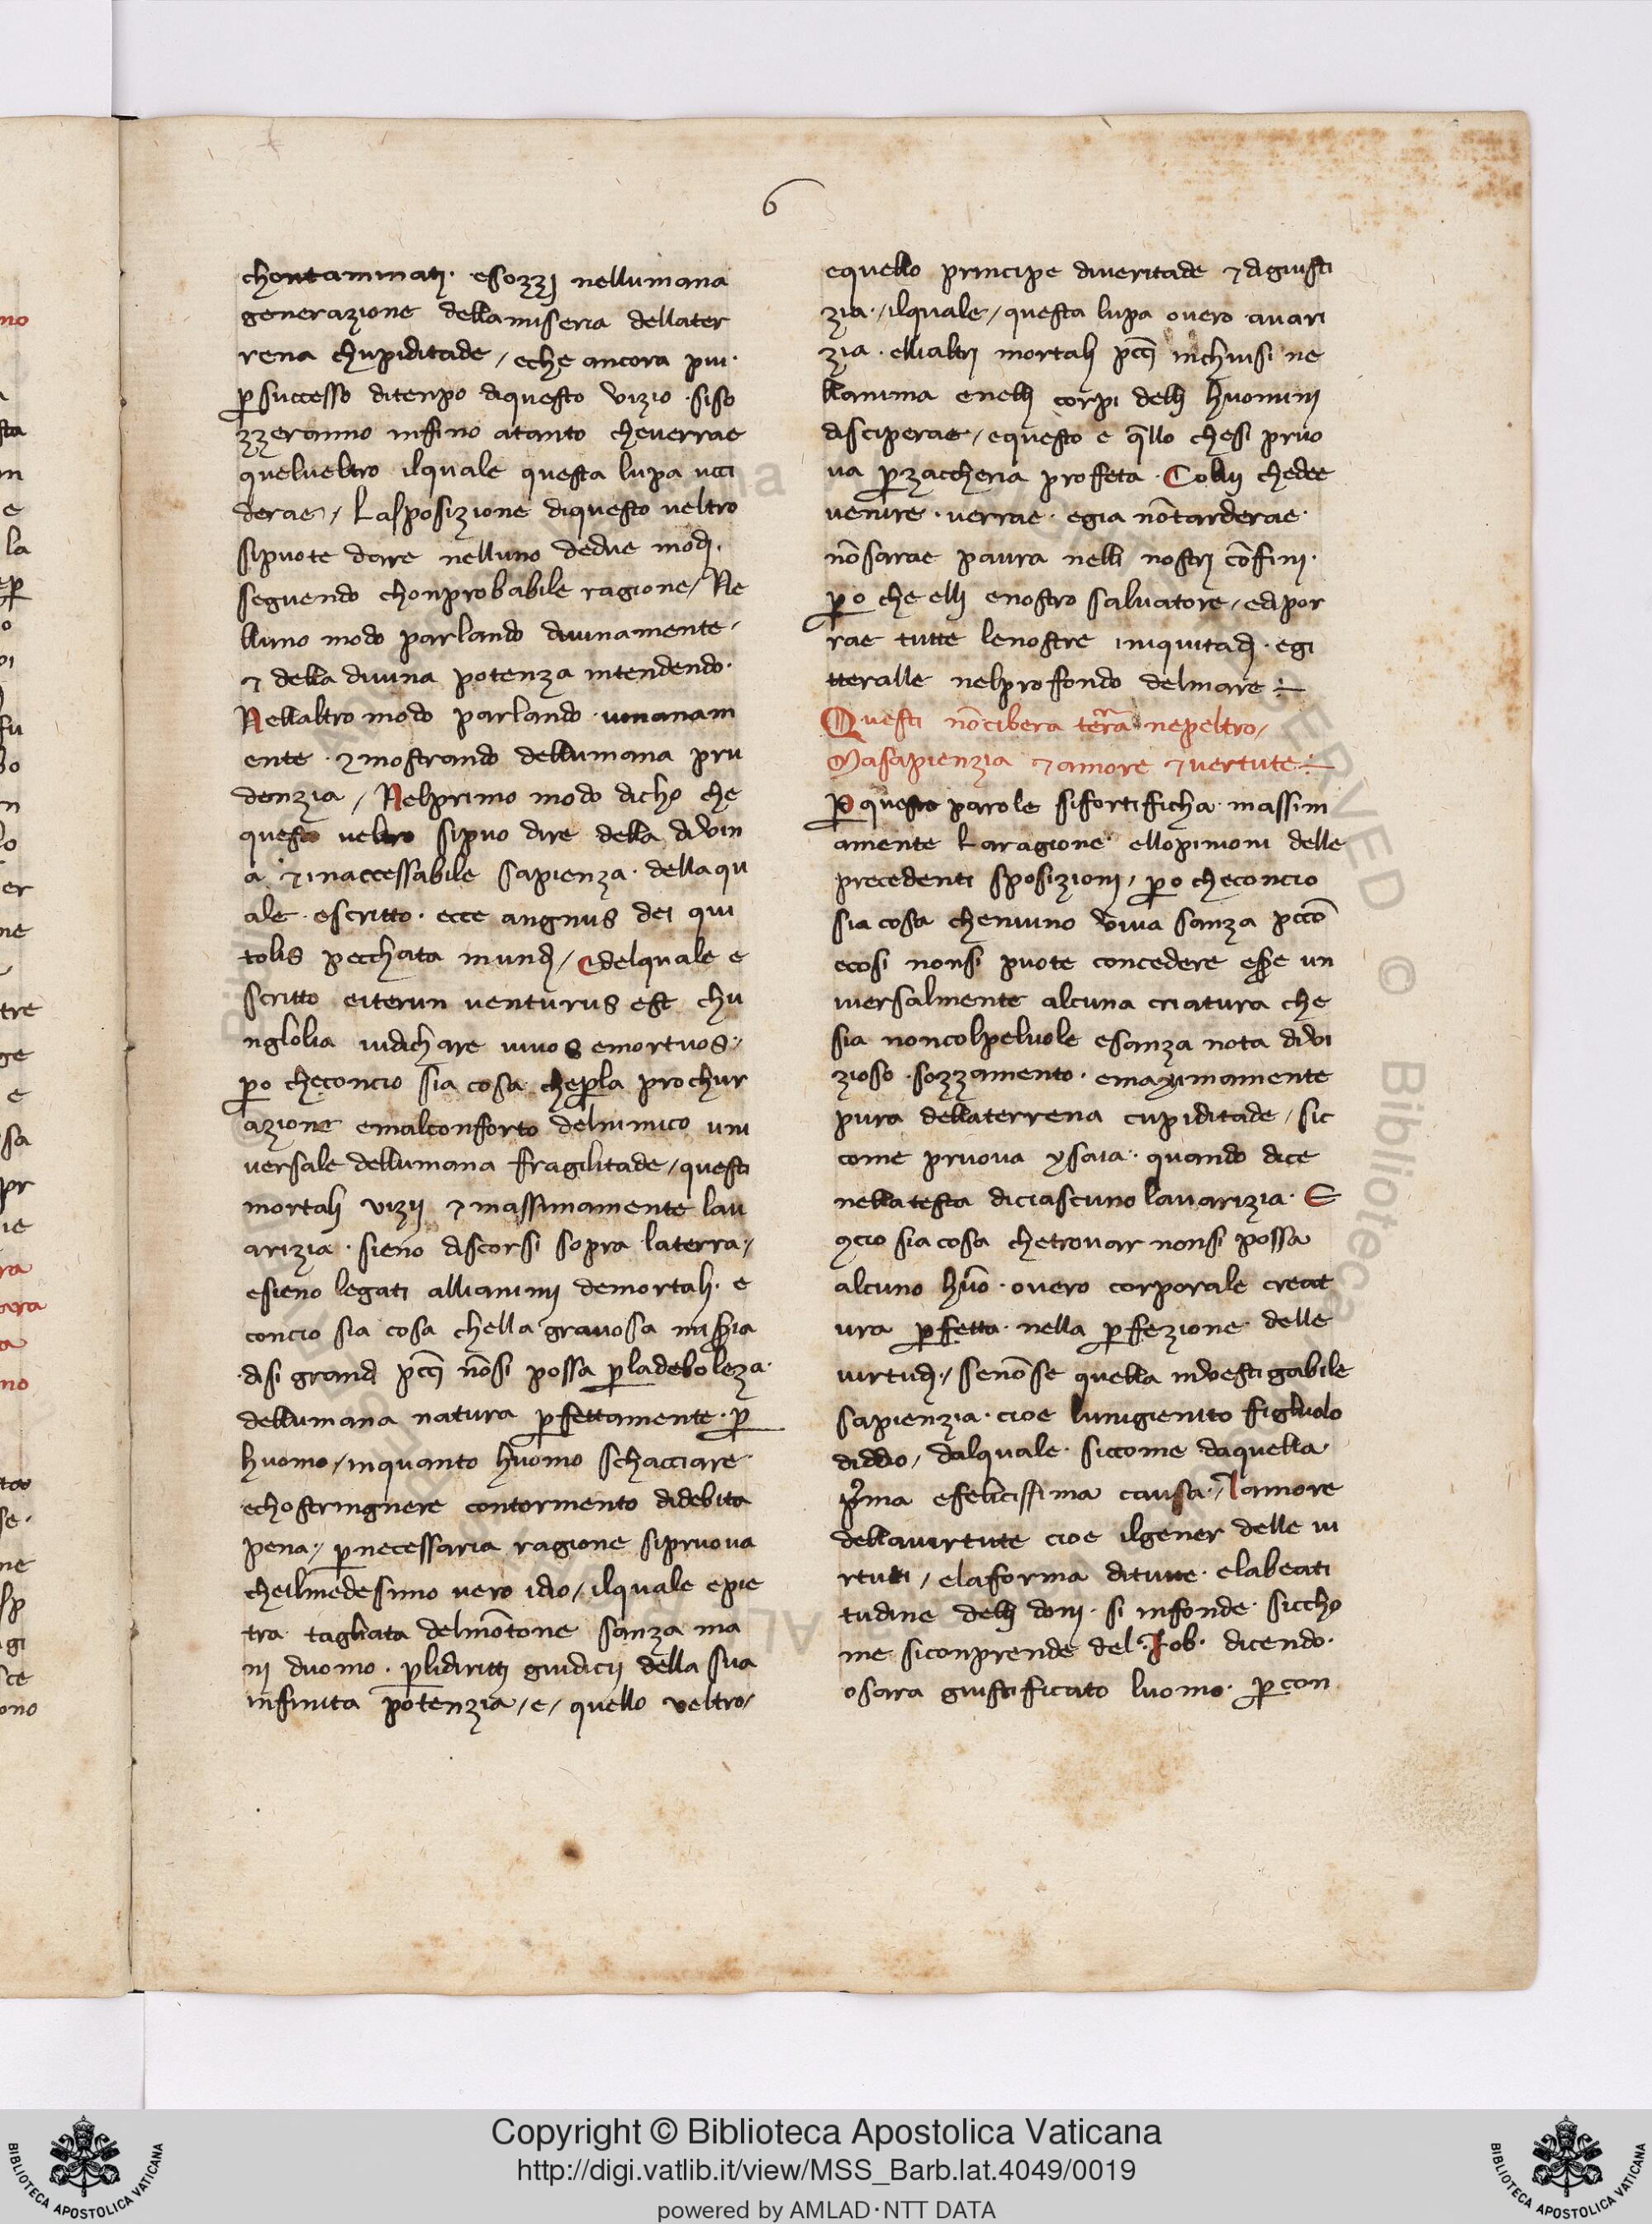 6
chontaminatj · esozzj nellumana
generazione dellamiseria dellater
rena chupiditade / eche ancora piu ·
ꝑ successo ditenpo diquesto vizio · siso
zzeranno infino atanto cheverrae
quelveltro ilquale questa lupa ucci
derae / Lasposizione diquesto veltro
sipuote dare nelluno dedue modj ·
seguendo chonprobabile ragione / Ne
lluno modo parlando divinamente /
⁊ della divina potenza intendendo ·
Nellaltro modo parlando umanam
ente · ⁊ mostrando dellumana pru
denzia / Nelprimo modo dicho che
questo veltro sipuo dire della divin
a · ⁊ inaccessabile sapienza · dellaqu
ale · escritto · ecce angnus dei qui
tolis pecchata mundj / Edelquale e
scritto eiterun venturus est chu
nglolia iudichare vivos emortuos ·/
ꝑo checoncio sia cosa cheꝑla prochur
azione emalconforto delnimico uni
versale dellumana fragilitade / questi
mortalj vizij ⁊ massimamente lau
arizia · sieno discorsi sopra laterra ·/
esieno legati allianimij demortalj · e
concio sia cosa chella gravosa misꝑia
· disi grandj pc̄cj nōsi possa ꝑladeboleza ·
dellumana natura ꝑfettamente · ꝑ
huomo / inquanto huomo schacciare
echostringnere contormento didebita
pena ·/ ꝑnecessaria ragione sipruova
cheilmedesimo vero idio / ilquale epie
tra tagliata delmōtone sanza ma
nj duomo · ꝑlidirittj giudicij della sua
infinita potenzia / e / quello veltro /
equello principe diveritade ⁊ digiusti
zia ·/ ilquale / questa lupa overo avari
zia · ellialtrj mortalj pc̄cj inchiusi ne
llanima enellj corpi dellj huominj
disciperae / equesto e q̄llo chesi pruo
va ꝑzaccheria proffeta · Coluj chedee
venire · verrae · egia nōtarderae ·
nōsarae paura nelli nostrj cōfinj ·
ꝑo che ellj enostro salvatore / edipor
rae tutte lenostre iniquitadj · egi
tteralle nelproffondo delmare ÷
Questi nōcibera terra nepeltro /
Masapienzia ⁊ amore ⁊ vertute ÷
Ꝑ queste parole sifortifficha massim
amente Laragione ellopinioni delle
precedenti sposizionj / ꝑo checoncio
sia cosa cheniuno viva sanza pc̄cō
ecosi nonsi puote concedere eꝑe un
iversalmente alcuna criatura che
sia noncolpelvole esanza nota divi
zioso · sozzamento · emaximamente
pura dellaterrena cupiditade / sic
come pruova ysaia · quando dice
nellatesta diciascuno lavarizia · E
ꝯcio sia cosa chetrovar nonsi possa
alcuno huō · overo corporale creat
ura ꝑfetta · nella ꝑfezione delle
virtudj ·/ senōse quella investigabile
sapienzia · cioe lunigienito figluolo
diddio / dalquale · siccome daquella
pͥma efelicissima causa ·/ lamore
dellavirtute cioe ilgener delle vi
rtuti / elaforma ditutte · elabeati
tudine dellj donj · si infonde siccho
me siconprende del · Job · dicendo ·
osara giustifficato luomo · ꝑcon
Copyright © Biblioteca Apostolica Vaticana
http://digi.vatlib.it/view/MSS_Barb.lat.4049/0019
powered by AMLAD·NTT DATA
BIBLIOTECA APOSTOLICA VATICANA
BIBLIOTECA APOSTOLICA VATICANA